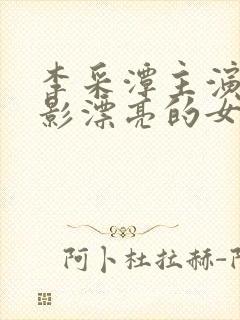 李采潭主演
影漂亮的女
阿卜杜拉赫-阿